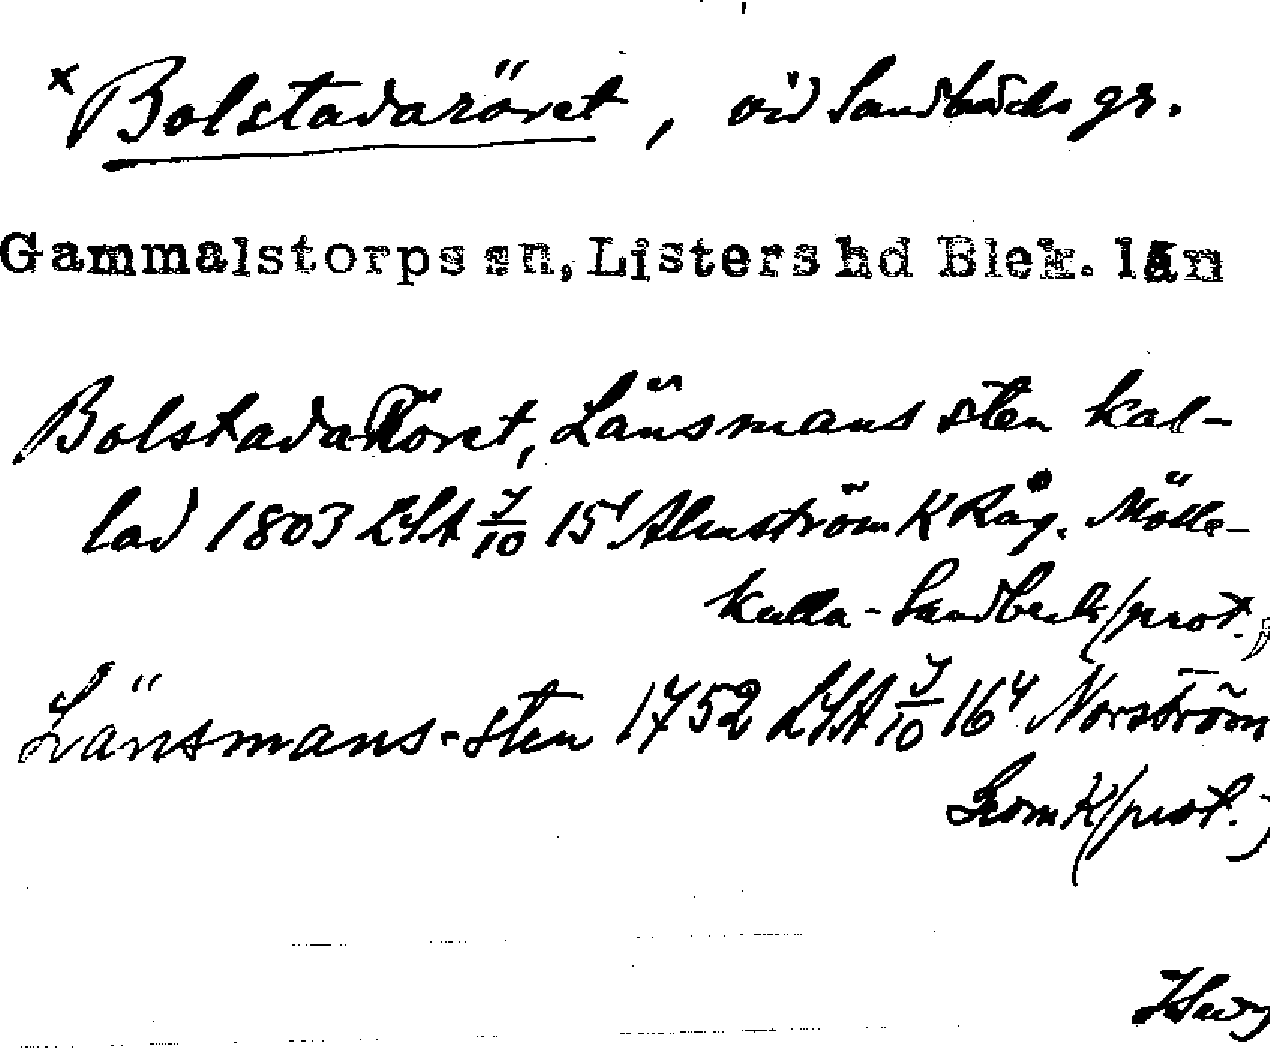 x Bolstadaröret, vid Sandbäcks gr.
Gammalstorps sn, Listers hd Blek. län
Bolstadaröret, Länsmans sten kal-
lad 1803 LSA 7/10 15¹ Almström K Råg. Mölle-
kulla - Sandbeck (prot.)
Länsmans-sten 1752 LSA 7/10 16⁴ Norström
GeomK (prot.)